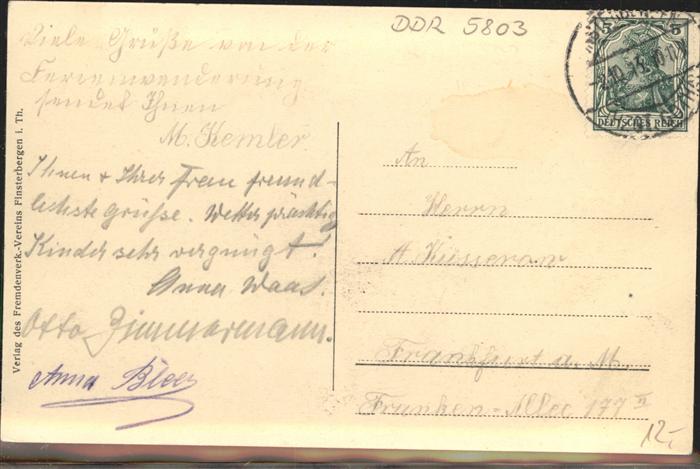 DDR 5803
Viele Grüße von der
Ferienwanderung
sendet Ihnen
M. Kemler.
Ihnen + Ihrer Frau freund-
lichste Grüsse. Wetter prächtig
Kinder sehr vergnügt!
Anna Waas.
Otto Zimmermann.
Anna
Verlag des Fremdenverk.-Vereins Finsterbergen i. Th.
5 5
DEUTSCHES REICH
An
Herrn
A. Küsserow
Frankfurt a. M.
Franken-Allee 177 II
12,-